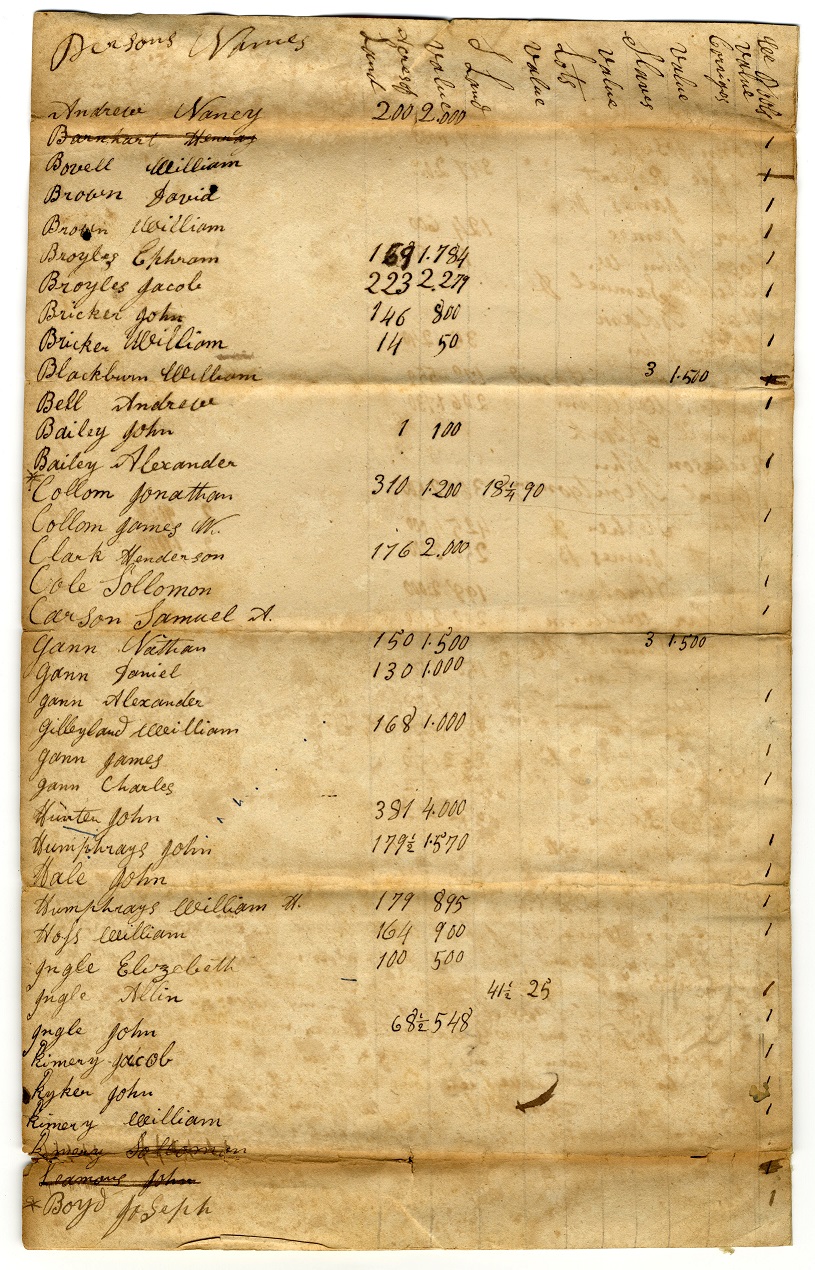 Persons Names Acres of Land Value S Land Value Lots Value Slaves Value Carriges Value
Andrew Nancy 200 2.000
Barnhart Henry 1
Bovell William 1
Brown David 1
Brown William 1
Broyles Ephram 169 1.784 1
Broyles Jacob 223 2.279 1
Bricker John 146 800
Bricker William 14 50 1
Blackburn William 3 1.500
Bell Andrew 1
Bailey John 1 100
Bailey Alexander 1
* Collom Jonathan 310 1.200 18¼ 90
Collom James W. 1
Clark Henderson 176 2.000
Cole Sollomon 1
Carson Samuel A. 1
Gann Nathan 150 1.500 3 1.500
Gann Daniel 130 1.000
Gann Alexander 1
Gilleyland William 168 1.000
Gann James 1
Gann Charles 1
Hunter John 381 4.000
Humphrays John 179½ 1.570 1
Hale John 1
Humphrays William H. 179 895 1
Hoss William 164 900 1
Ingle Elizebeth 100 500
Ingle Allin 41½ 25 1
Ingle John 68½ 548 1
Kimery Jacob 1
Kyker John
Kimery William 1
Kimery Solloman
Leamons John
* Boyd Joseph 1